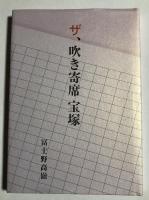 ザ、吹き寄席 宝塚
冨士野高嶺